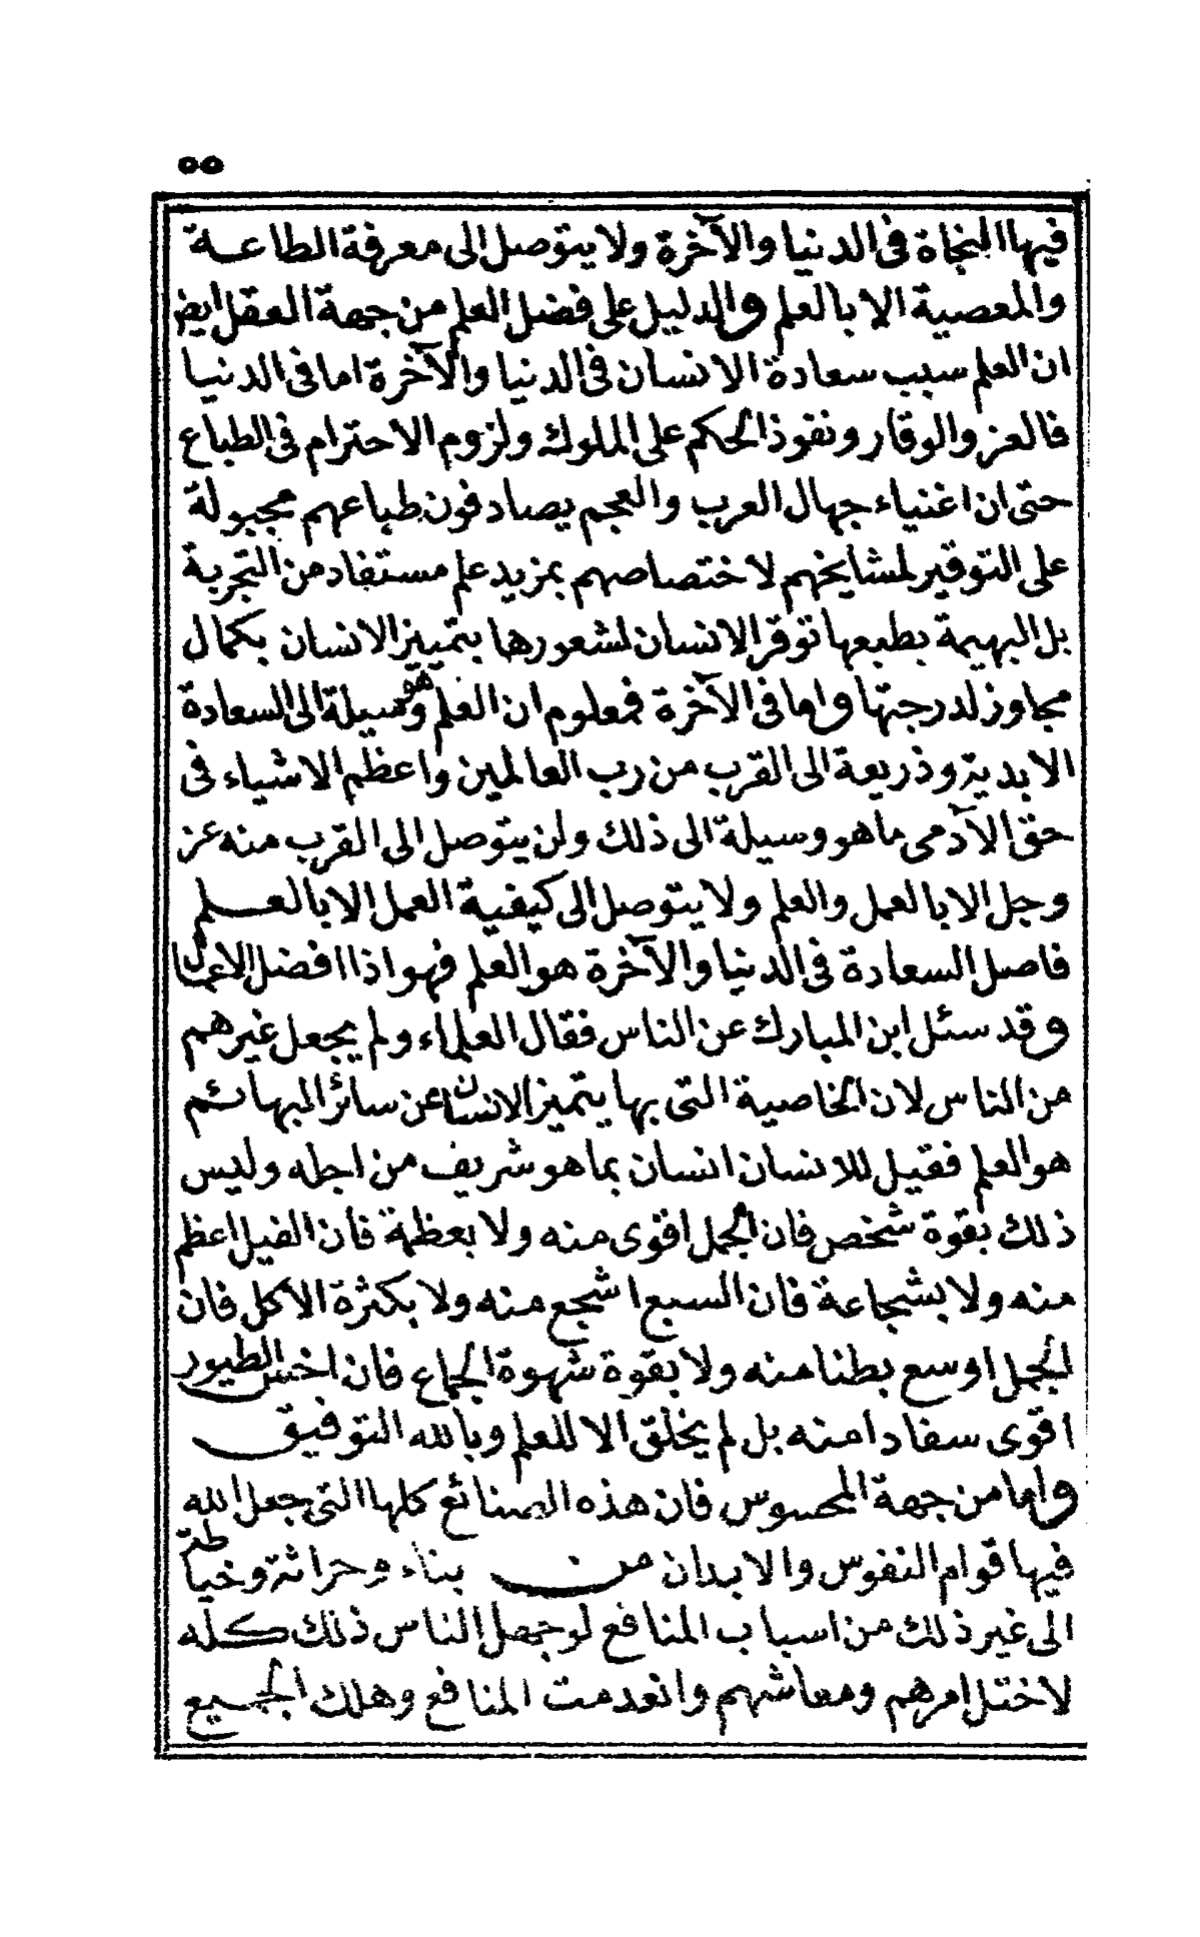 ٥٥
فيها النجاة فى الدنيا والآخرة ولا يتوصل الى معرفة الطاعة
والمعصية الا بالعلم والدليل على فضل العلم من جهة العقل ايض
ان العلم سبب سعادة الانسان فى الدنيا والآخرة اما فى الدنيا
فالعز والوقار ونفوذ الحكم على الملوك ولزوم الاحترام فى الطباع
حتى ان اغنياء جهال العرب والعجم يصادفون طباعهم مجبولة
على التوقير لمشايخهم لاختصاصهم بمزيد علم مستفاد من التجربة
بل البهيمة بطبعها توقر الانسان لشعورها بتمييز الانسان بكمال
مجاوز لدرجتها واما فى الآخرة فمعلوم ان العلم هو وسيلة الى السعادة
الابدية وذريعة الى القرب من رب العالمين واعظم الاشياء فى
حق الآدمى ما هو وسيلة الى ذلك ولن يتوصل الى القرب منه عز
وجل الا بالعمل والعلم ولا يتوصل الى كيفية العمل الا بالعلم
فاصل السعادة فى الدنيا والآخرة هو العلم فهو اذا افضل الاعمال
وقد سئل ابن المبارك عن الناس فقال العلماء ولم يجعل غيرهم
من الناس لان الخاصية التى بها يتميز الانسان عن سائر البهائم
هو العلم فقيل للانسان انسان بما هو شريف من اجله وليس
ذلك بقوة شخص فان الجمل اقوى منه ولا بعظمة فان الفيل اعظم
منه ولا بشجاعة فان السبع اشجع منه ولا بكثرة الاكل فان
الجمل اوسع بطنا منه ولا بقوة شهوة الجماع فان اخس الطيور
اقوى سفادا منه بل لم يخلق الا للعلم وبالله التوفيق
واما من جهة المحسوس فان هذه الصنائع كلها التى جعل الله
فيها قوام النفوس والابدان من بناء وحراثة وخياطة
الى غير ذلك من اسباب المنافع لو جهل الناس ذلك كله
لاختل امرهم ومعاشهم وانعدمت المنافع وهلك الجميع